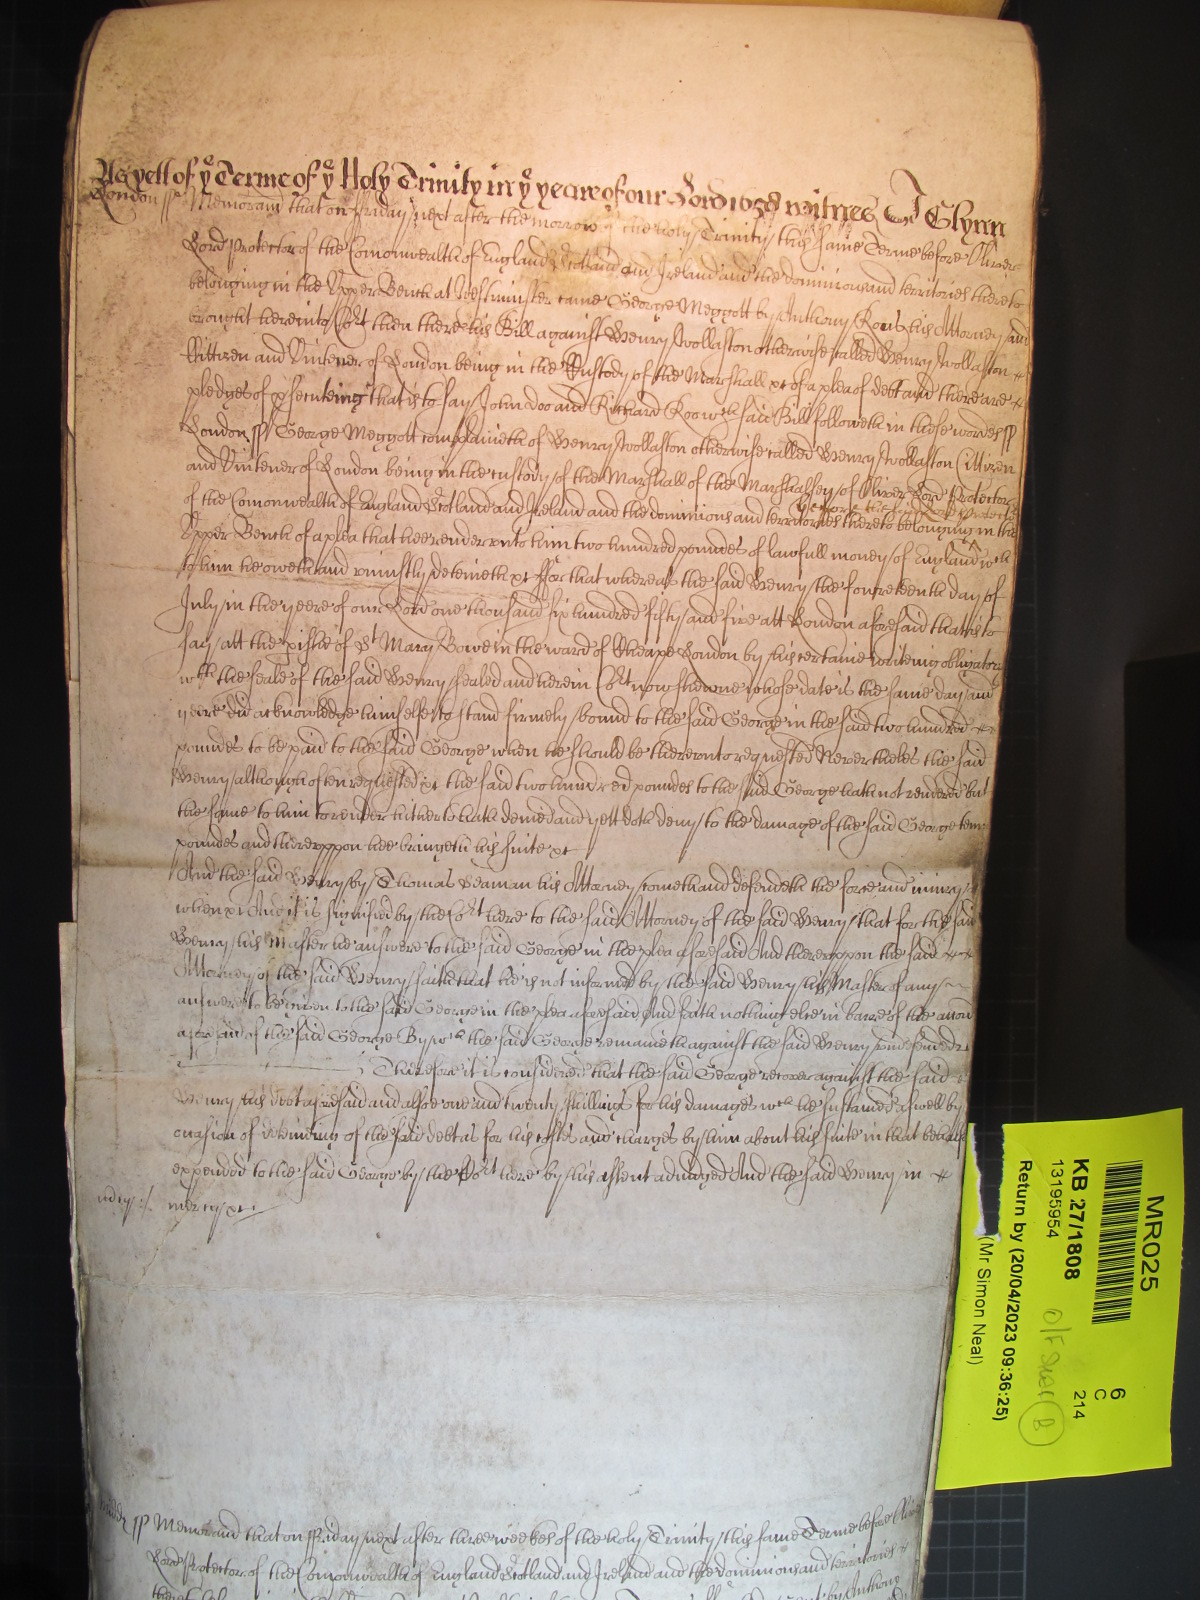 As yett of yᵉ Terme of yᵉ Holy Trinity in yᵉ yeare of our Lord 1658 witnes J Glynn
London ss Memorand that on Friday next after the morrow of the holy Trinity this same Terme before Oliver
Lord Protector of the Comonwealth of England Scotland and Ireland and the dominions and territories thereto
belonging in the Upper Bench at Westminster came George Meggott by Anthony Rous his Attorney and
brought here into Coʳt then there his Bill against Henry Wollaston otherwise called Henry Wollaston
Cittizen and Vintener of London being in the Custody of the Marshall &c of a plea of debt and there are
pledges of psecuteing that is to say John Doo and Richard Roo wᶜʰ said Bill followeth in these words ss
London ss George Meggott complaineth of Henry Wollaston otherwise called Henry Wollaston Cittizen
and Vintener of London being in the custody of the Marshall of the Marshalsey of Oliver Lord Protector
of the Comonwealth of England Scotland and Ireland and the dominions and territories thereto belonging in the
before the Lord Protector
Upper Bench of a plea that hee render unto him two hundred poundes of lawfull money of England wᶜʰ
to him he oweth and uniustly deteineth &c For that whereas the said Henry the fourteenth day of
July in the yeere of our Lord one thousand six hundred fifty and five att London aforesaid that is to
say att the pishe of Sᵗ Mary Bowe in the ward of Cheape London by his certaine writeing obligatory
wᵗʰ the seale of the said Henry sealed and herein Coʳt now shewne whose date is the same day and
yeere did acknowledge himselfe to stand firmely bound to the said George in the said two hundred
poundes to be paid to the said George when he should be thereunto requested Neverthelesʒ the said
Henry although often requested &c the said two hundred poundes to the said George hath not rendered but
the same to him to render hitherto hath denied and yett doth deny to the damage of the said George tenn
poundes and thereuppon hee bringeth his suite &c
And the said Henry by Thomas Beaman his Attorney cometh and defendeth the force and iniury
when &c And it is signified by the Coʳt here to the said Attorney of the said Henry that for the said
Henry his Master he answere to the said George in the plea aforesaid And thereuppon the said
Attorney of the said Henry saith that he is not informed by the said Henry his Master of any
answere to be given to the said George in the plea aforesaid And saith nothing else in barre of the accon
aforesaid of the said George By wᶜʰ the said George remaineth against the said Henry undefended
Therefore it is considered that the said George recover against the said
Henry his debt aforesaid and alsoe one and twenty shillings for his damages wᶜʰ he sustained aswell by
occasion of deteining of the said debt as for his costes and charges by him about his suite in that behalfe
expended to the said George by the Coʳt here by his assent adiudged And the said Henry in
mercy &c
MR025
KB 27/1808
13195954
6
C
214
Return by (20/04/2023 09:36:25)
(Mr Simon Neal)
B
Midds ss Memorand that on Friday next after three weekes of the holy Trinity this same Terme before Oliver
Lord Protector of the Comonwealth of England Scotland and Ireland and the dominions and territories
by Anthony